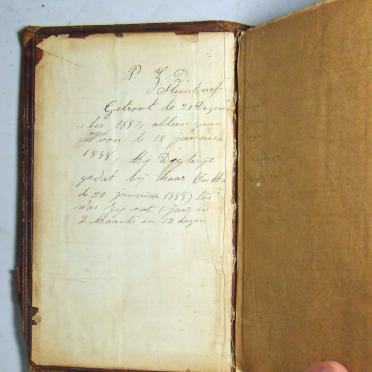 P Z D.
Steenkamp
Getrout de 20 Dezem
ber 1887, alleen gaan
Woon de 18 januarie
1888
gedat bij haar
de 20 januarie 1888) toe
was zij oot 1 jaar en
2 Maande en 12 dagen